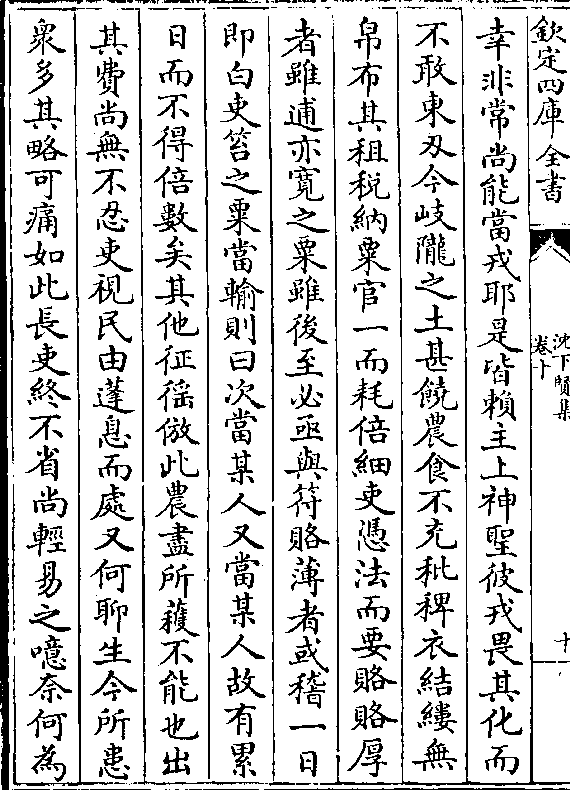 欽定四庫全書
沈下賢集
卷十
十
幸非常尚能當戎耶是皆賴主上神聖彼戎畏其化而
不敢東刄今岐隴之土甚饒農食不充秕稗衣結縷無
帛布其租税納粟官一而耗倍細吏憑法而要賂賂厚
者雖逋亦寛之粟雖後至必亟與符賂薄者或稽一日
即白吏笞之粟當輸則曰次當某人又當某人故有累
日而不得倍數矣其他征徭倣此農盡所蓷不能也出
其費尚無不忍吏視民由蓬息而處又何聊生今所患
衆多其略可痛如此長吏終不省尚輕易之噫奈何為